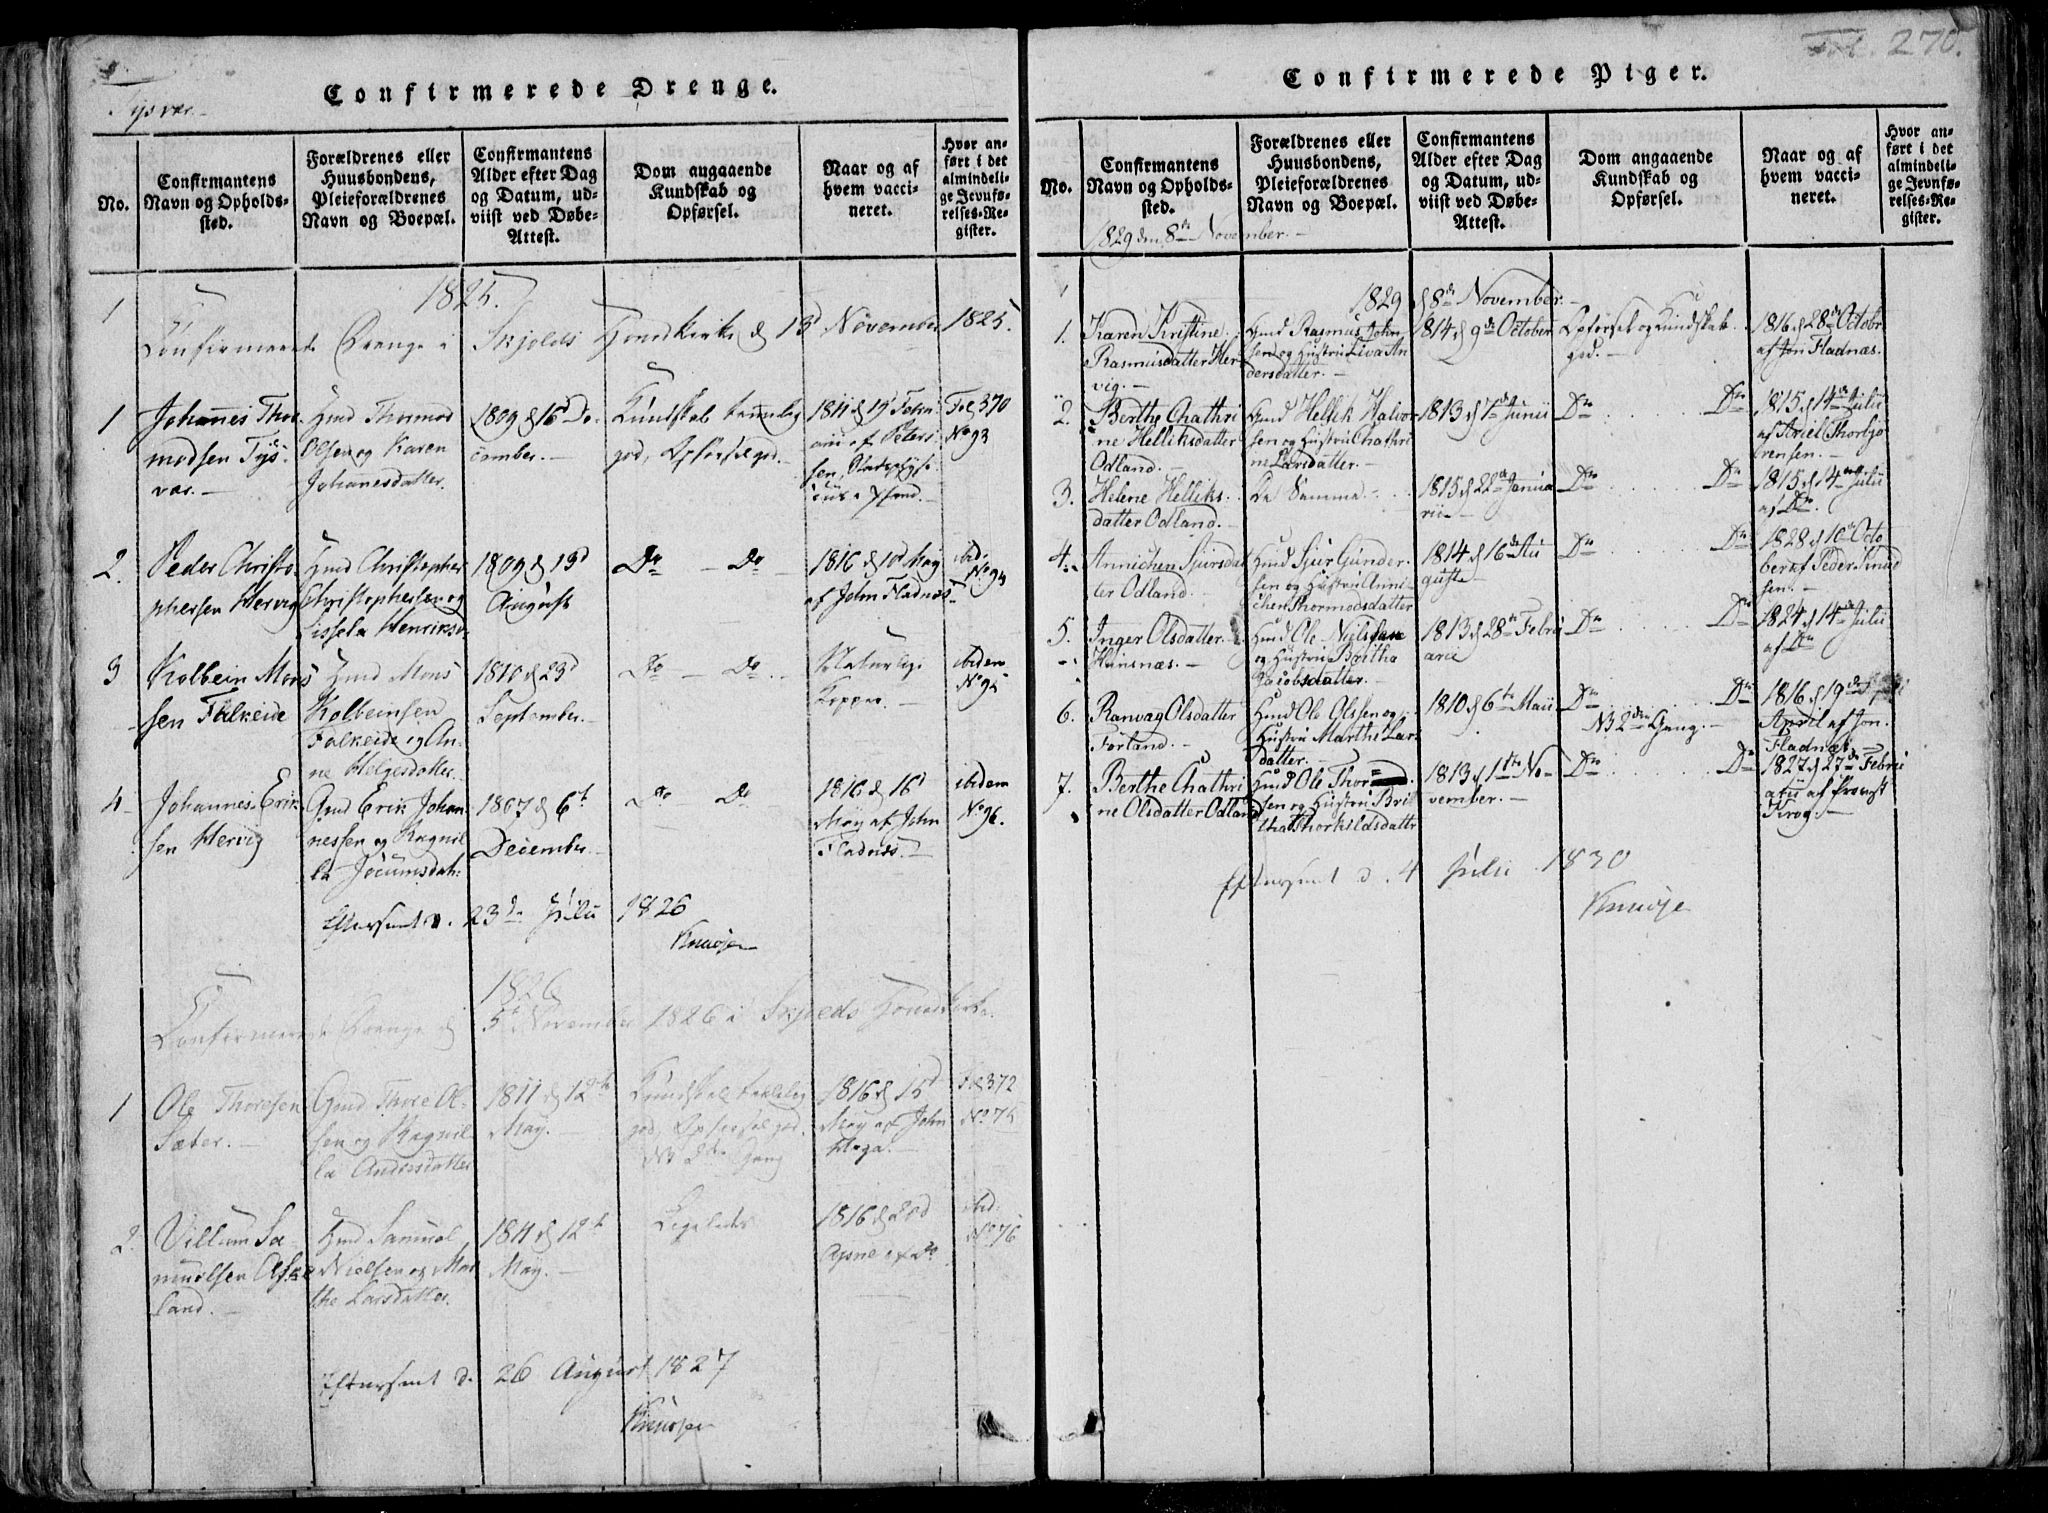 Tysvær
Confirmerede Drenge.
No.
Confirmantens
Navn og Opholds-
sted.
Forældrenes eller
Huusbondens,
Pleieforældrenes
Navn og Boepæl.
Confirmantens
Alder efter Dag
og Datum, ud-
viist ved Døbe-
Attest.
Dom angaaende
Kundskab og
Opførsel.
Naar og af
hvem vacci-
neret.
Hvor an-
ført i det
almindeli-
ge Jevnfø-
relses-Re-
gister.
1825.
Confirmerede Drenge i Skjolds Hovedkirke d 13d November 1825.
1
Johannes Thor-
modsen Tys-
vær.
Gmd Thormod
Olsen og Karen
Johanesdatter
1809 d 16d De-
cember.
Kundskab temmelig
god, Opførsel god.
Fol 370
No 93
2.
Peder Christo-
phersen Hervig
Gmd Christopher
Christophersen og
Sissela Henriksd.
1809 d 13d
August
Do - Do
1816 d 10d May
af John Fladnæs
ibid.
No 94
3
Kolbein Mons
sen Falkeide
Gmd Mons
Kolbeinsen
Falkeide og An-
ne Helgesdatter
1810 d 23d
September.
Do - Do
Naturlige
Kopper.
ibidem
No 95
4
Johannes Erik
sen Hervig
Gmd Erik Johan-
nessen og Ragnil-
la Jocumsdatt:
1807 d 6t
December
Do Do
1816 d 16d
May af John
Fladnæs.
ibidem
No 96.
Efterseet d. 23de Julii 1826
1826
Confirmerede Drenge d 5t November 1826 i Skjolds Hovedkirke.
1
Ole Thoresen
Sæter.
Gmd Thore Ol-
sen og Ragnil-
la Andersdatter
1811 d 12te
May.
god, Opførsel god.
NB 2den Gang
1816 d 15d
May af John
Fol 372
No 75
2.
Villum Sa-
muelsen
land.
Gmd Samuel
Nielsen og Mar
the Larsdatter.
1811 d 12t
May.
Ligeledes
1816 d 20d
ibid.
No 76
Efterseet d. 26 August 1827
Fol. 270.
Confirmerede Piger.
No.
Confirmantens
Navn og Opholds-
sted.
Forældrenes eller
Huusbondens,
Pleieforældrenes
Navn og Boepæl.
Confirmantens
Alder efter Dag
og Datum, ud-
viist ved Døbe-
Attest.
Dom angaaende
Kundskab og
Opførsel.
Naar og af
hvem vacci-
neret.
Hvor an-
ført i det
almindeli-
ge Jevnfø-
relses-Re-
gister.
1829 den 8de November.
1829 d 8de November.
1.
Karen Kristine
Rasmusdatter Her-
vig.
Gmd Rasmus John
sen og Hustru Liva An
dersdatter.
1814 d 9de October
Opførsel og Kundskab
god.
1816 d 28de Octobr
af Jon Fladnæs.
2.
Berthe Chathri
ne Helliksdatter
Odland.
Gmd Hellik Halvor
sen og Hustru Chathri
ne Larsdatter.
1813 d 7de Junii
Do Do
1815 d 14de Julii
af Ariel Thorbjø
rensen.
3.
Helene Helliks-
datter Odland.
De Samme
1815 d 22de Janua
rii
Do Do
1815 d 14de Julii
af Do.
4.
Annichen Sjursdat
ter Odland.
Gmd Sjur Gunder-
sen og Hustru Anni-
chen Thormodsdatter
1814 d 16de Au
guste
Do Do
1828 d 10de Octo
ber af Peder Knud
sen.
5.
Inger Olsdatter
Heinsnæs.
Gmd Ole Nielsen
og Hustru Bertha
Jacobsdatter.
1813 d 28de Febru
arii
Do Do
1824 d 14de Julii
af Do
6.
Ranvag Olsdatter
Førland.
Gmd Ole Olssen og
Hustru Marthe Lar
datter.
1810 d 6te Maii
Do Do
NB 2den Gang.
1816 d 19de
April af Jon
Fladnæs
7.
Berthe Chathri
ne Olsdatter Odland
Gmd Ole Thor
sen og Hustru Bri
tha Thorkildsdattr
1813 d 1ste No-
vember.
Do Do
1827 d 27de Febru
arii af Provst
Krog.
Efterseet d. 4 Julii 1830